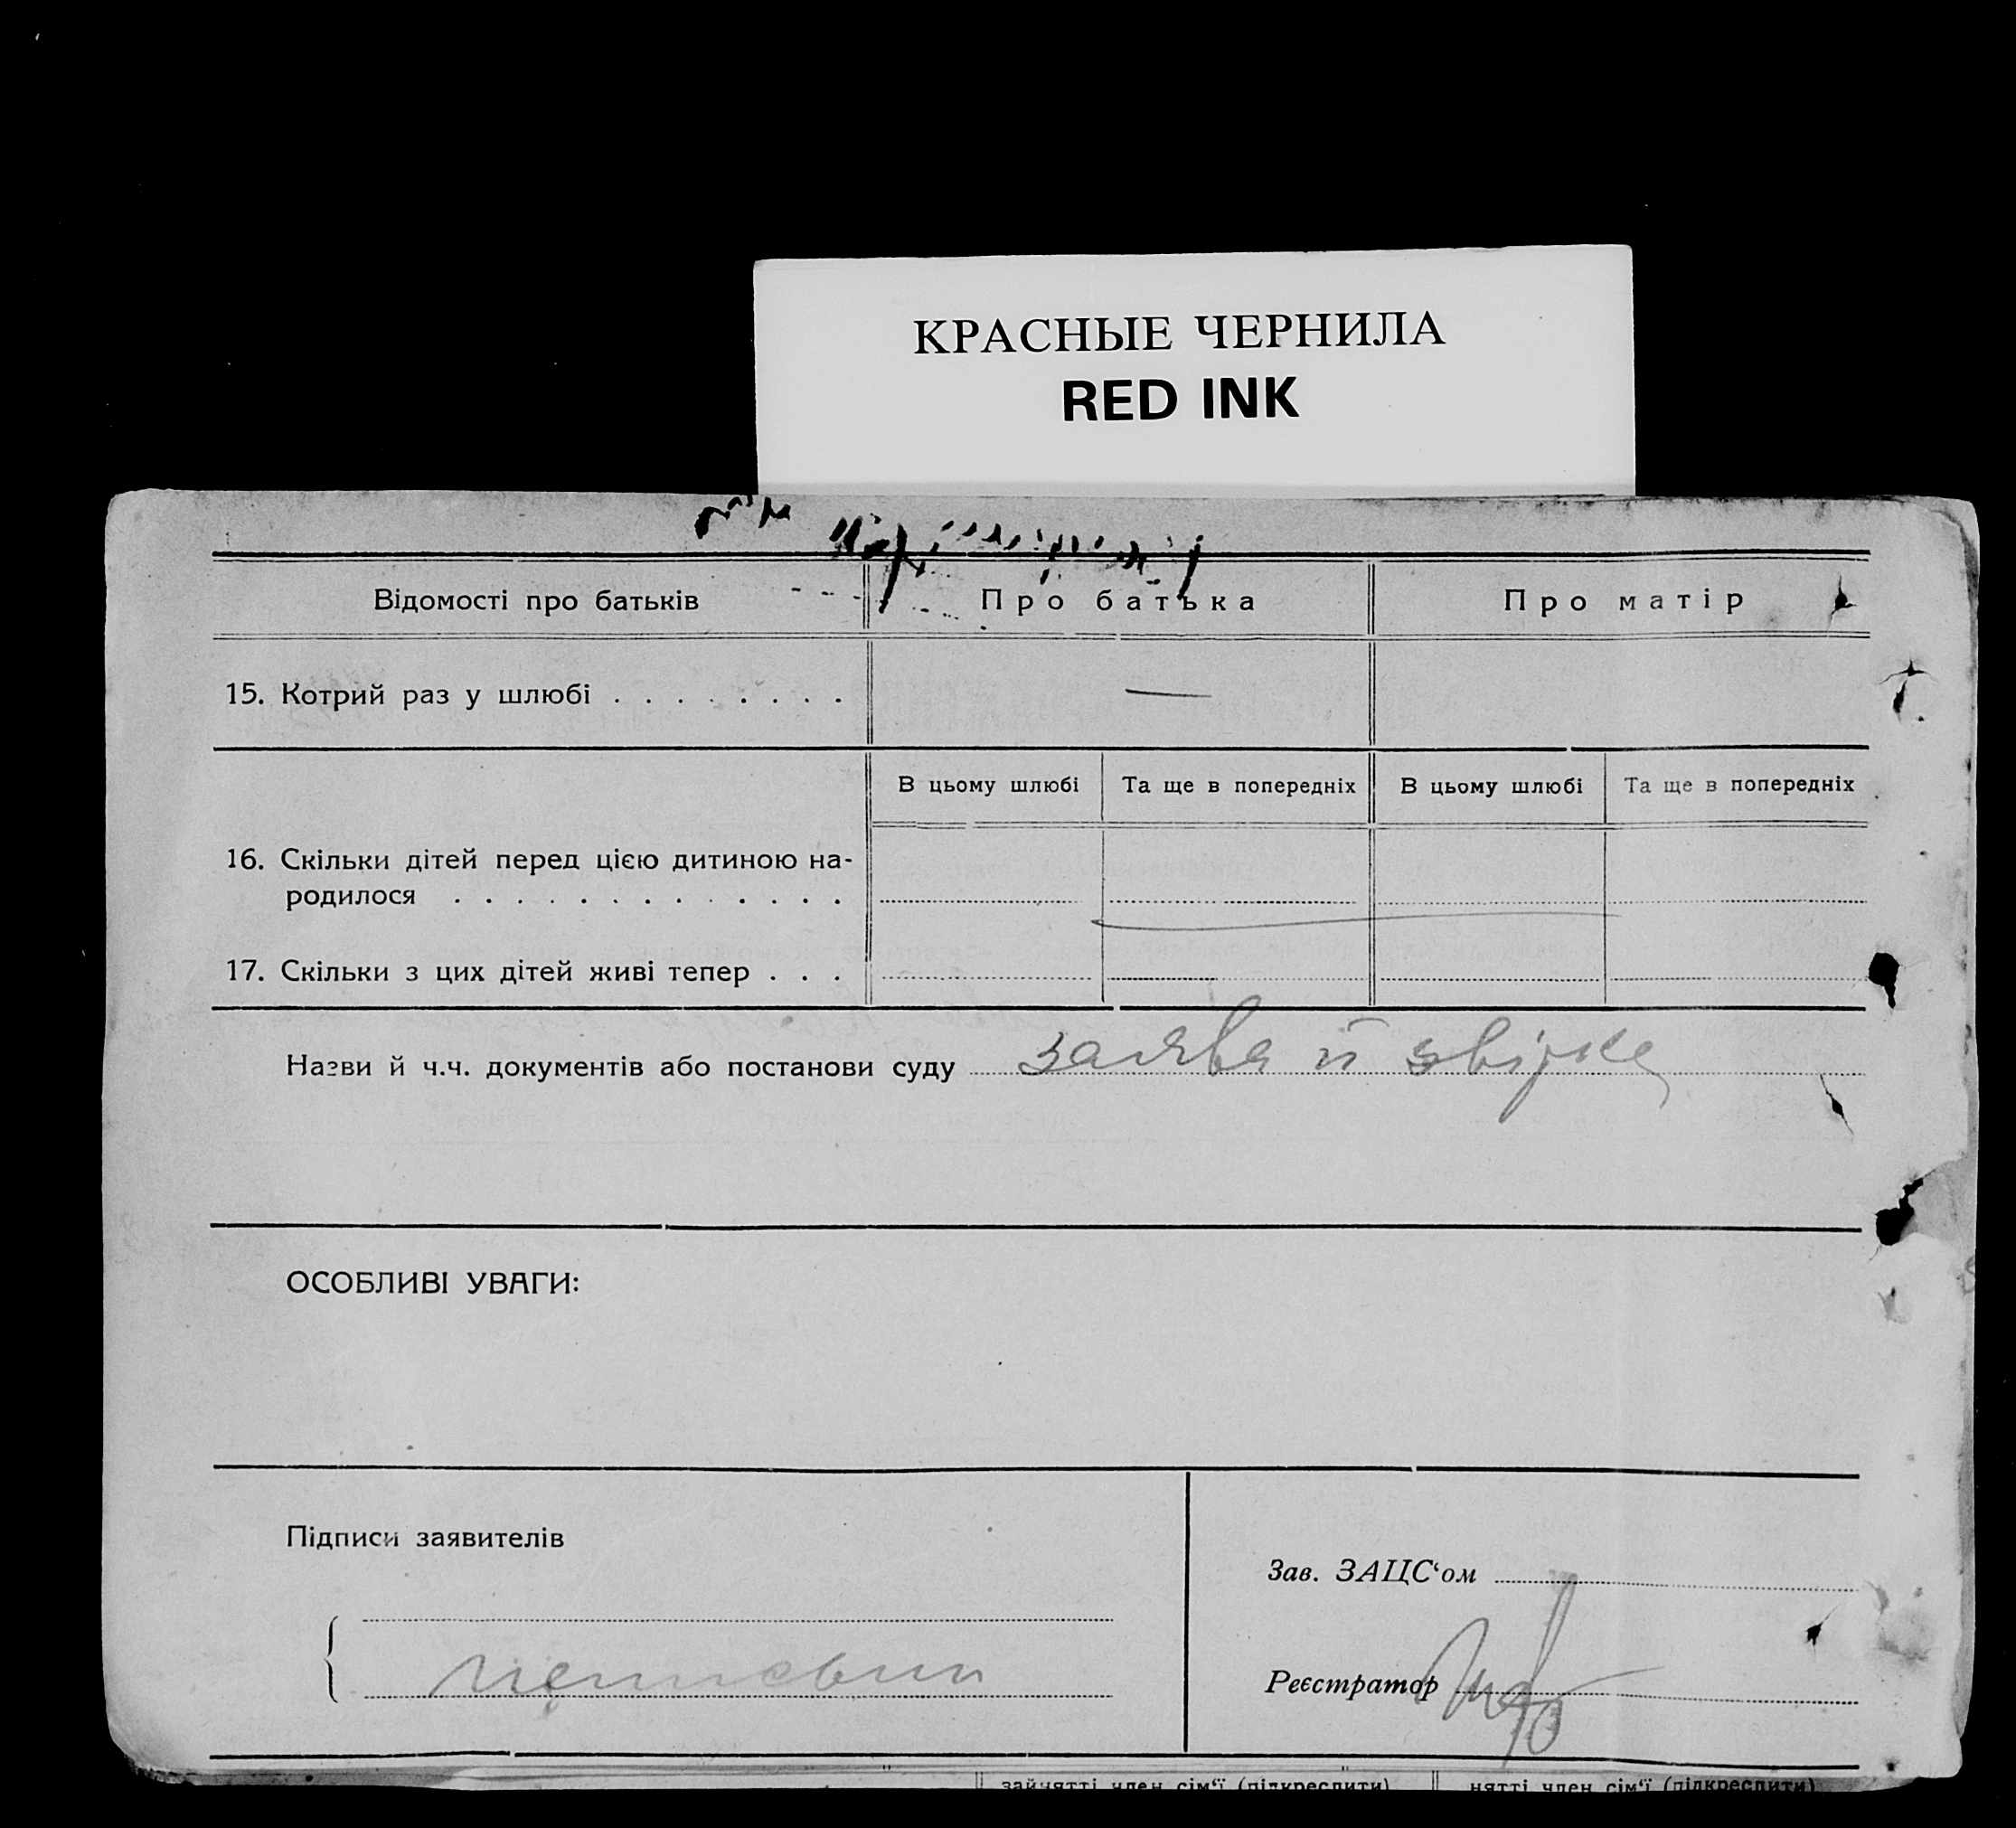 КРАСНЫЕ ЧЕРНИЛА
RED INK
Відомості про батьків Про батька Про матір
15. Котрий раз у шлюбі . . . . . . . . —
В цьому шлюбі Та ще в попередніх В цьому шлюбі Та ще в попередніх
16. Скільки дітей перед цією дитиною на-
родилося . . . . . . . . . . . . .
17. Скільки з цих дітей живі тепер . . .
Назви й ч.ч. документів або постанови суду заява й
ОСОБЛИВІ УВАГИ:
Підписи заявителів
Зав. ЗАЦС‘ом
Реєстратор
зайнятті член сім‘ї (підкреслити) нятті член сім‘ї (підкреслити)